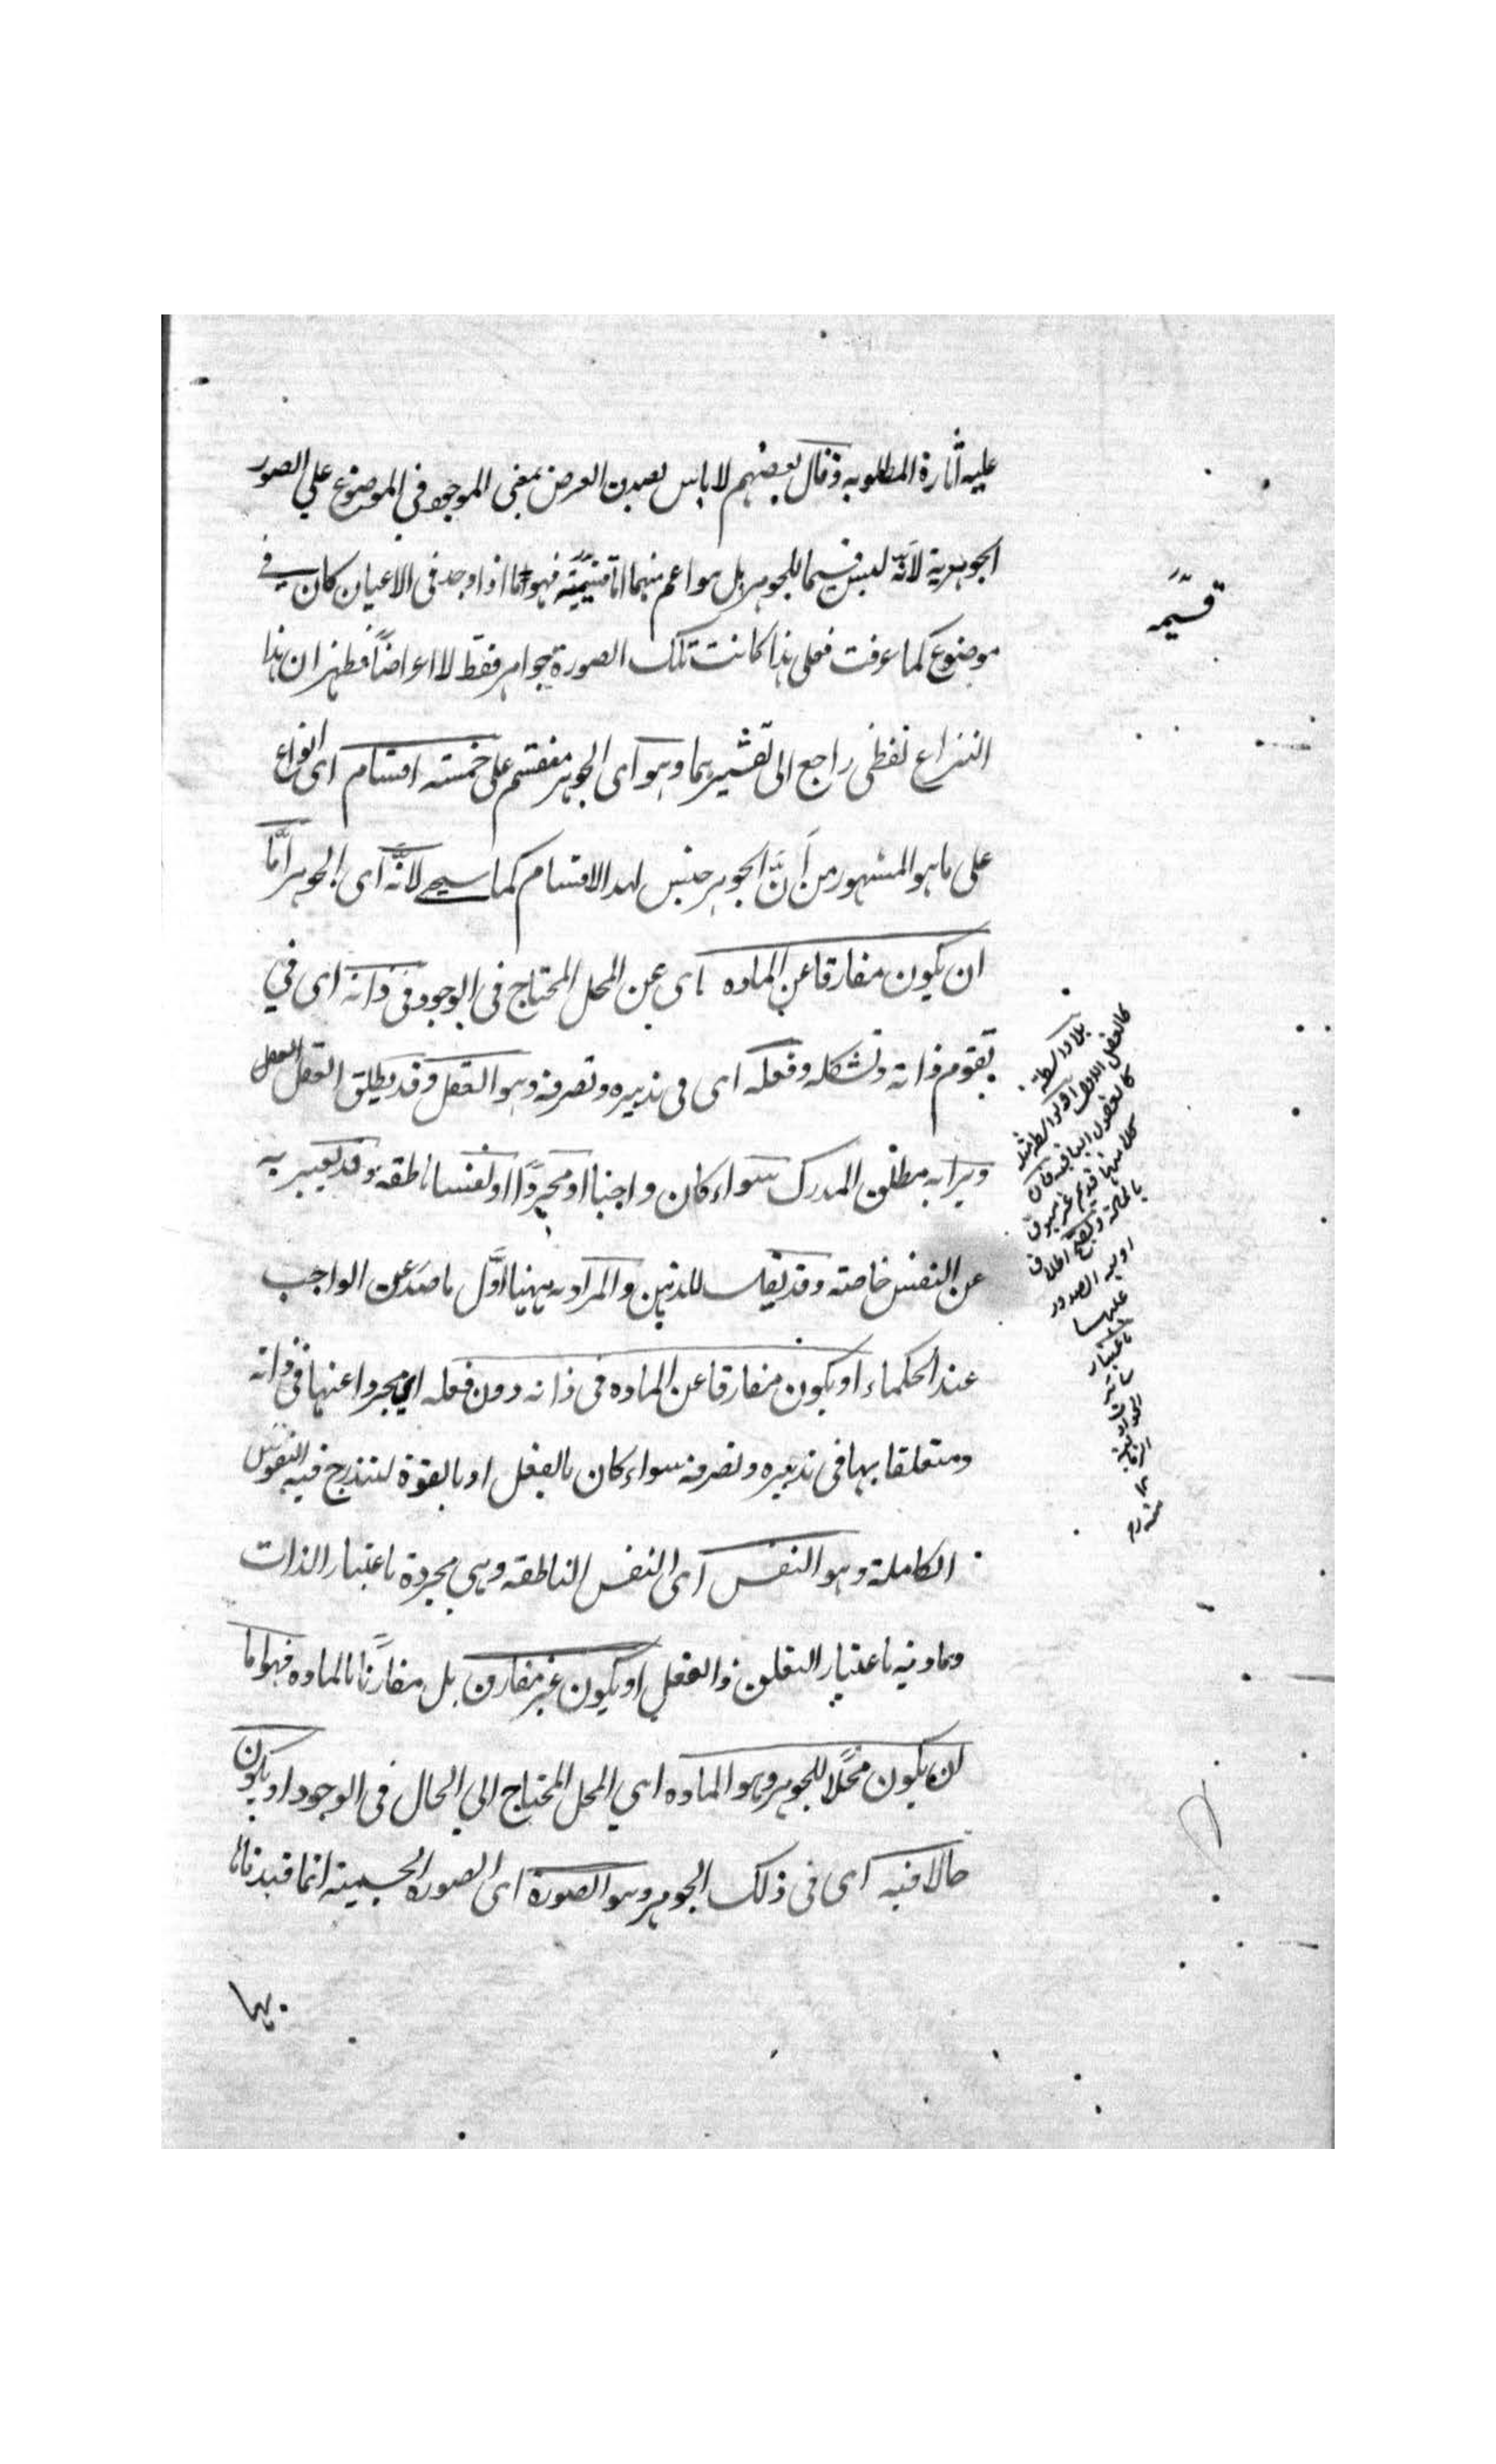 عليه آثاره المطلوبه وقال بعضهم لا باس بصدق العرض بمعنى الموجود في الموضوع علي الصور
الجوهرية لانّه ليس قسيما للجوهر بل هو اعم منهما اما قسيمه فهو ما اذا وجد في الاعيان كان في
موضوع كما عرفت فعلى هذا كانت تلك الصورة جواهر فقط لا اعراضاً فظهر ان هذا
النزاع لفظي راجع الى تفسيرهما وهو اى الجوهر منقسم على خمسته اقسام اى انواع
على ما هو المشهور من أنّ الجوهر جنس لهذا الاقسام كما سيجے لانّه اى الجوهر امّا
ان يكون مفارقا عن الماده اى عن المحل المحتاج فى الوجود فى ذاته اى في
تقوم ذاته وتشكله وفعله اى فى تدبيره وتصرفه وهو العقل وقد يطلق العقل
ويراد به مطلق المدرك سواء كان واجبا او مجردًا او نفسا ناطقه وقد يعبر به
عن النفس خاصته وقد يقال للذهن والمراد به ههنا اوّل ما صدر عن الواجب
عند الحكماء او يكون مفارقا عن الماده فى ذاته دون فعله اي مجردا عنها فى ذاته
ومتعلقا بها فى تدبيره وتصرفه سواء كان بالفعل او بالقوة ليندرج فيه النفوس
الكاملة وهو النفس اى النفس الناطقه وهي مجردة باعتبار الذات
وماديه باعتبار التعلق والفعل او يكون غير مفارق بل مقارنًا بالماده فهو اما
ان يكون محلًا للجوهر وهو الماده اي المحل المحتاج الي الحال فى الوجود او يكون
حالا فيه اى فى ذلك الجوهر وهو الصورة اى الصورة الجسميته انما قيدنا
بهما
قسيمه
بلا واسطة
كالعقل الاول او بواسطة
كالعقول الباقيه فان
كلا منها قديم غير مسبوق
بالمادة ويصح اطلاق
اوليه الصدور
عليها
باعتبار
منه ره